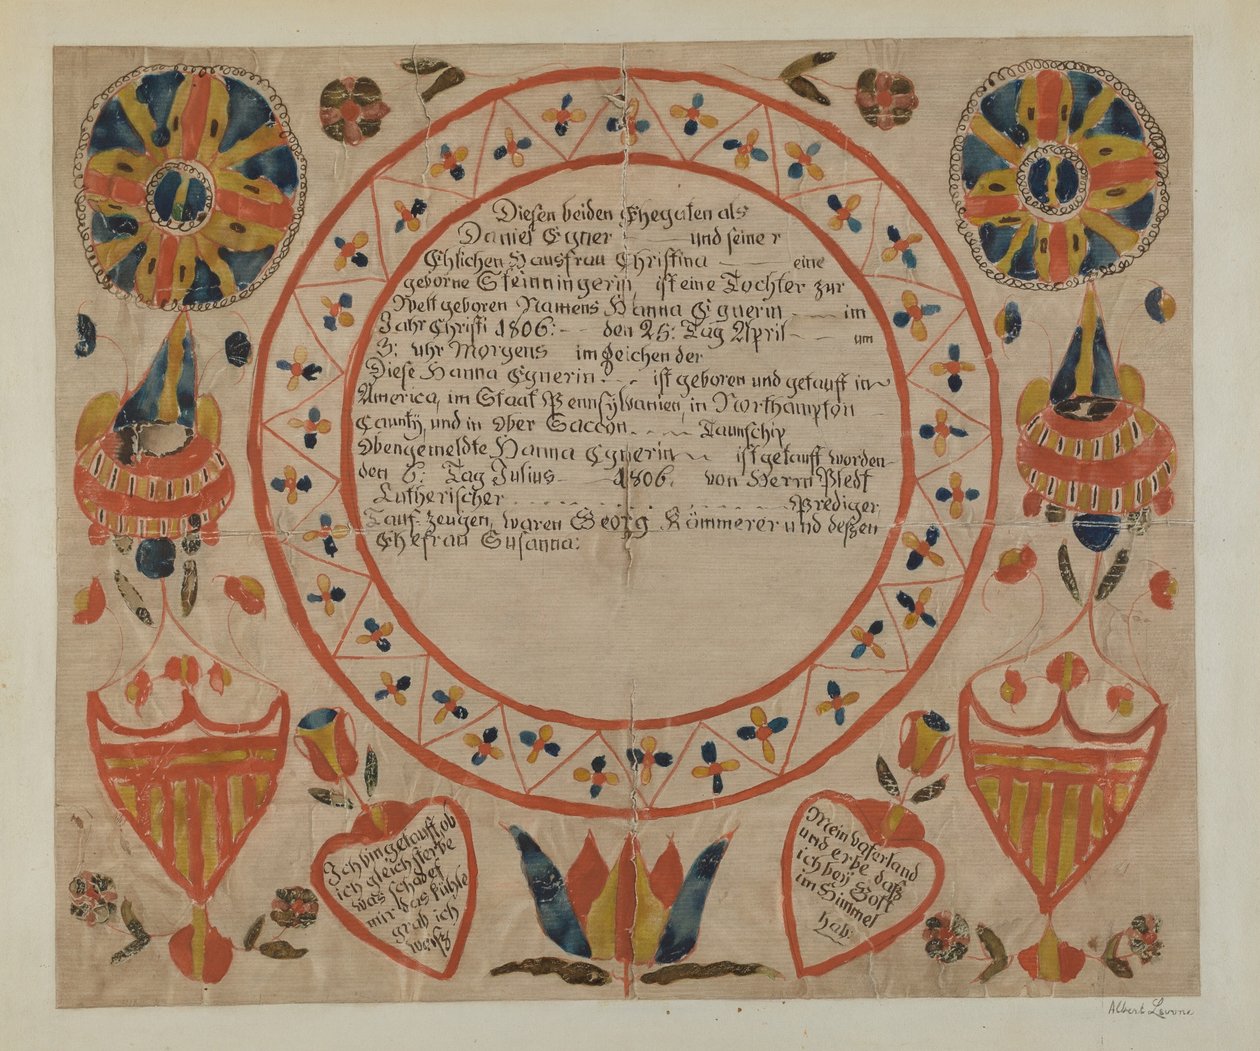 Diesen beiden Ehegaten als
Daniel Egner und seiner
Ehlichen Hausfrau Christina eine
geborne Steinningerin ist eine Tochter zur
Welt geboren Namens Hanna Egnerin im
Jahr Christi 1806: den 25: Tag April um
3: uhr Morgens im Zeichen der
Diese Hanna Egnerin ist geboren und getauft in
America, im Staat Pennsylvanien, in Northampton
Caunty, und in Ober Saccon Taunschip
Obengemeldte Hanna Egnerin ist getauft worden
den 6: Tag Julius 1806. von Herrn
Lutherischer Prediger,
Tauf zeugen, waren Georg Römmerer und deßen
Ehefrau Susanna:
Ich bin getauft, ob
ich gleich sterbe
was schadet
mir das kühle
grab ich
weiß
Mein vaterland
und erbe daß
ich bey Gott
im Himmel
hab:
Albert Levone